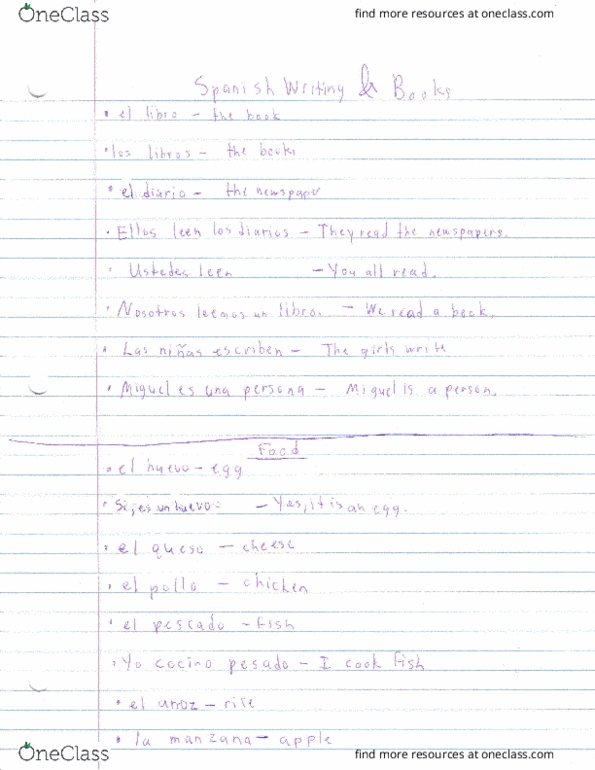 OneClass
find more resources at oneclass.com
Spanish Writing & Books
• el libro - the book
• los libros - the books
• el diario - the newspaper
• Ellos leen los diarios - They read the newspapers.
• Ustedes leen - You all read.
• Nosotros leemos un libro. - We read a book.
• Las niñas escriben - The girls write
• Miguel es una persona - Miguel is a person.
Food
• el huevo - egg
• Si, es un huevo. - Yes, it is an egg.
• el queso - cheese
• el pollo - chicken
• el pescado - fish
• Yo cocino pesado - I cook fish
• el arroz - rice
• la manzana - apple
OneClass
find more resources at oneclass.com